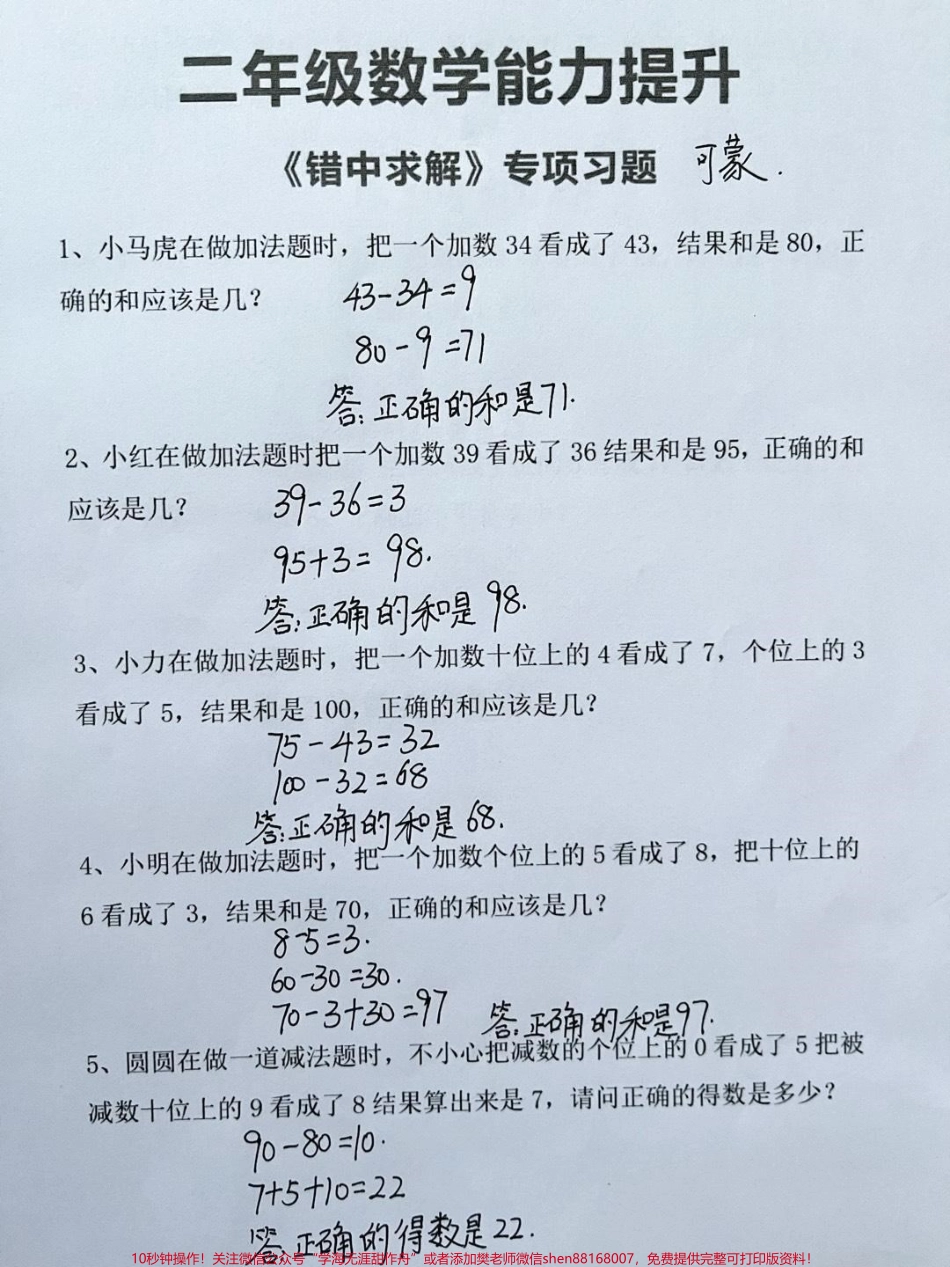 二年级数学能力提升
《错中求解》专项习题 可蒙.
1、小马虎在做加法题时，把一个加数 34 看成了 43，结果和是 80，正
确的和应该是几？ 43-34=9
80-9=71
答:正确的和是71.
2、小红在做加法题时把一个加数 39 看成了 36 结果和是 95，正确的和
应该是几？ 39-36=3
95+3=98.
答:正确的和是98.
3、小力在做加法题时，把一个加数十位上的 4 看成了 7，个位上的 3
看成了 5，结果和是 100，正确的和应该是几？
75-43=32
100-32=68
答:正确的和是68.
4、小明在做加法题时，把一个加数个位上的 5 看成了 8，把十位上的
6 看成了 3，结果和是 70，正确的和应该是几？
8-5=3.
60-30=30.
70-3+30=97 答:正确的和是97.
5、圆圆在做一道减法题时，不小心把减数的个位上的 0 看成了 5 把被
减数十位上的 9 看成了 8 结果算出来是 7，请问正确的得数是多少？
90-80=10.
7+5+10=22
答:正确的得数是22.
10秒钟操作！关注微信公众号“学海无涯甜作舟”或者添加樊老师微信shen88168007，免费提供完整可打印版资料！